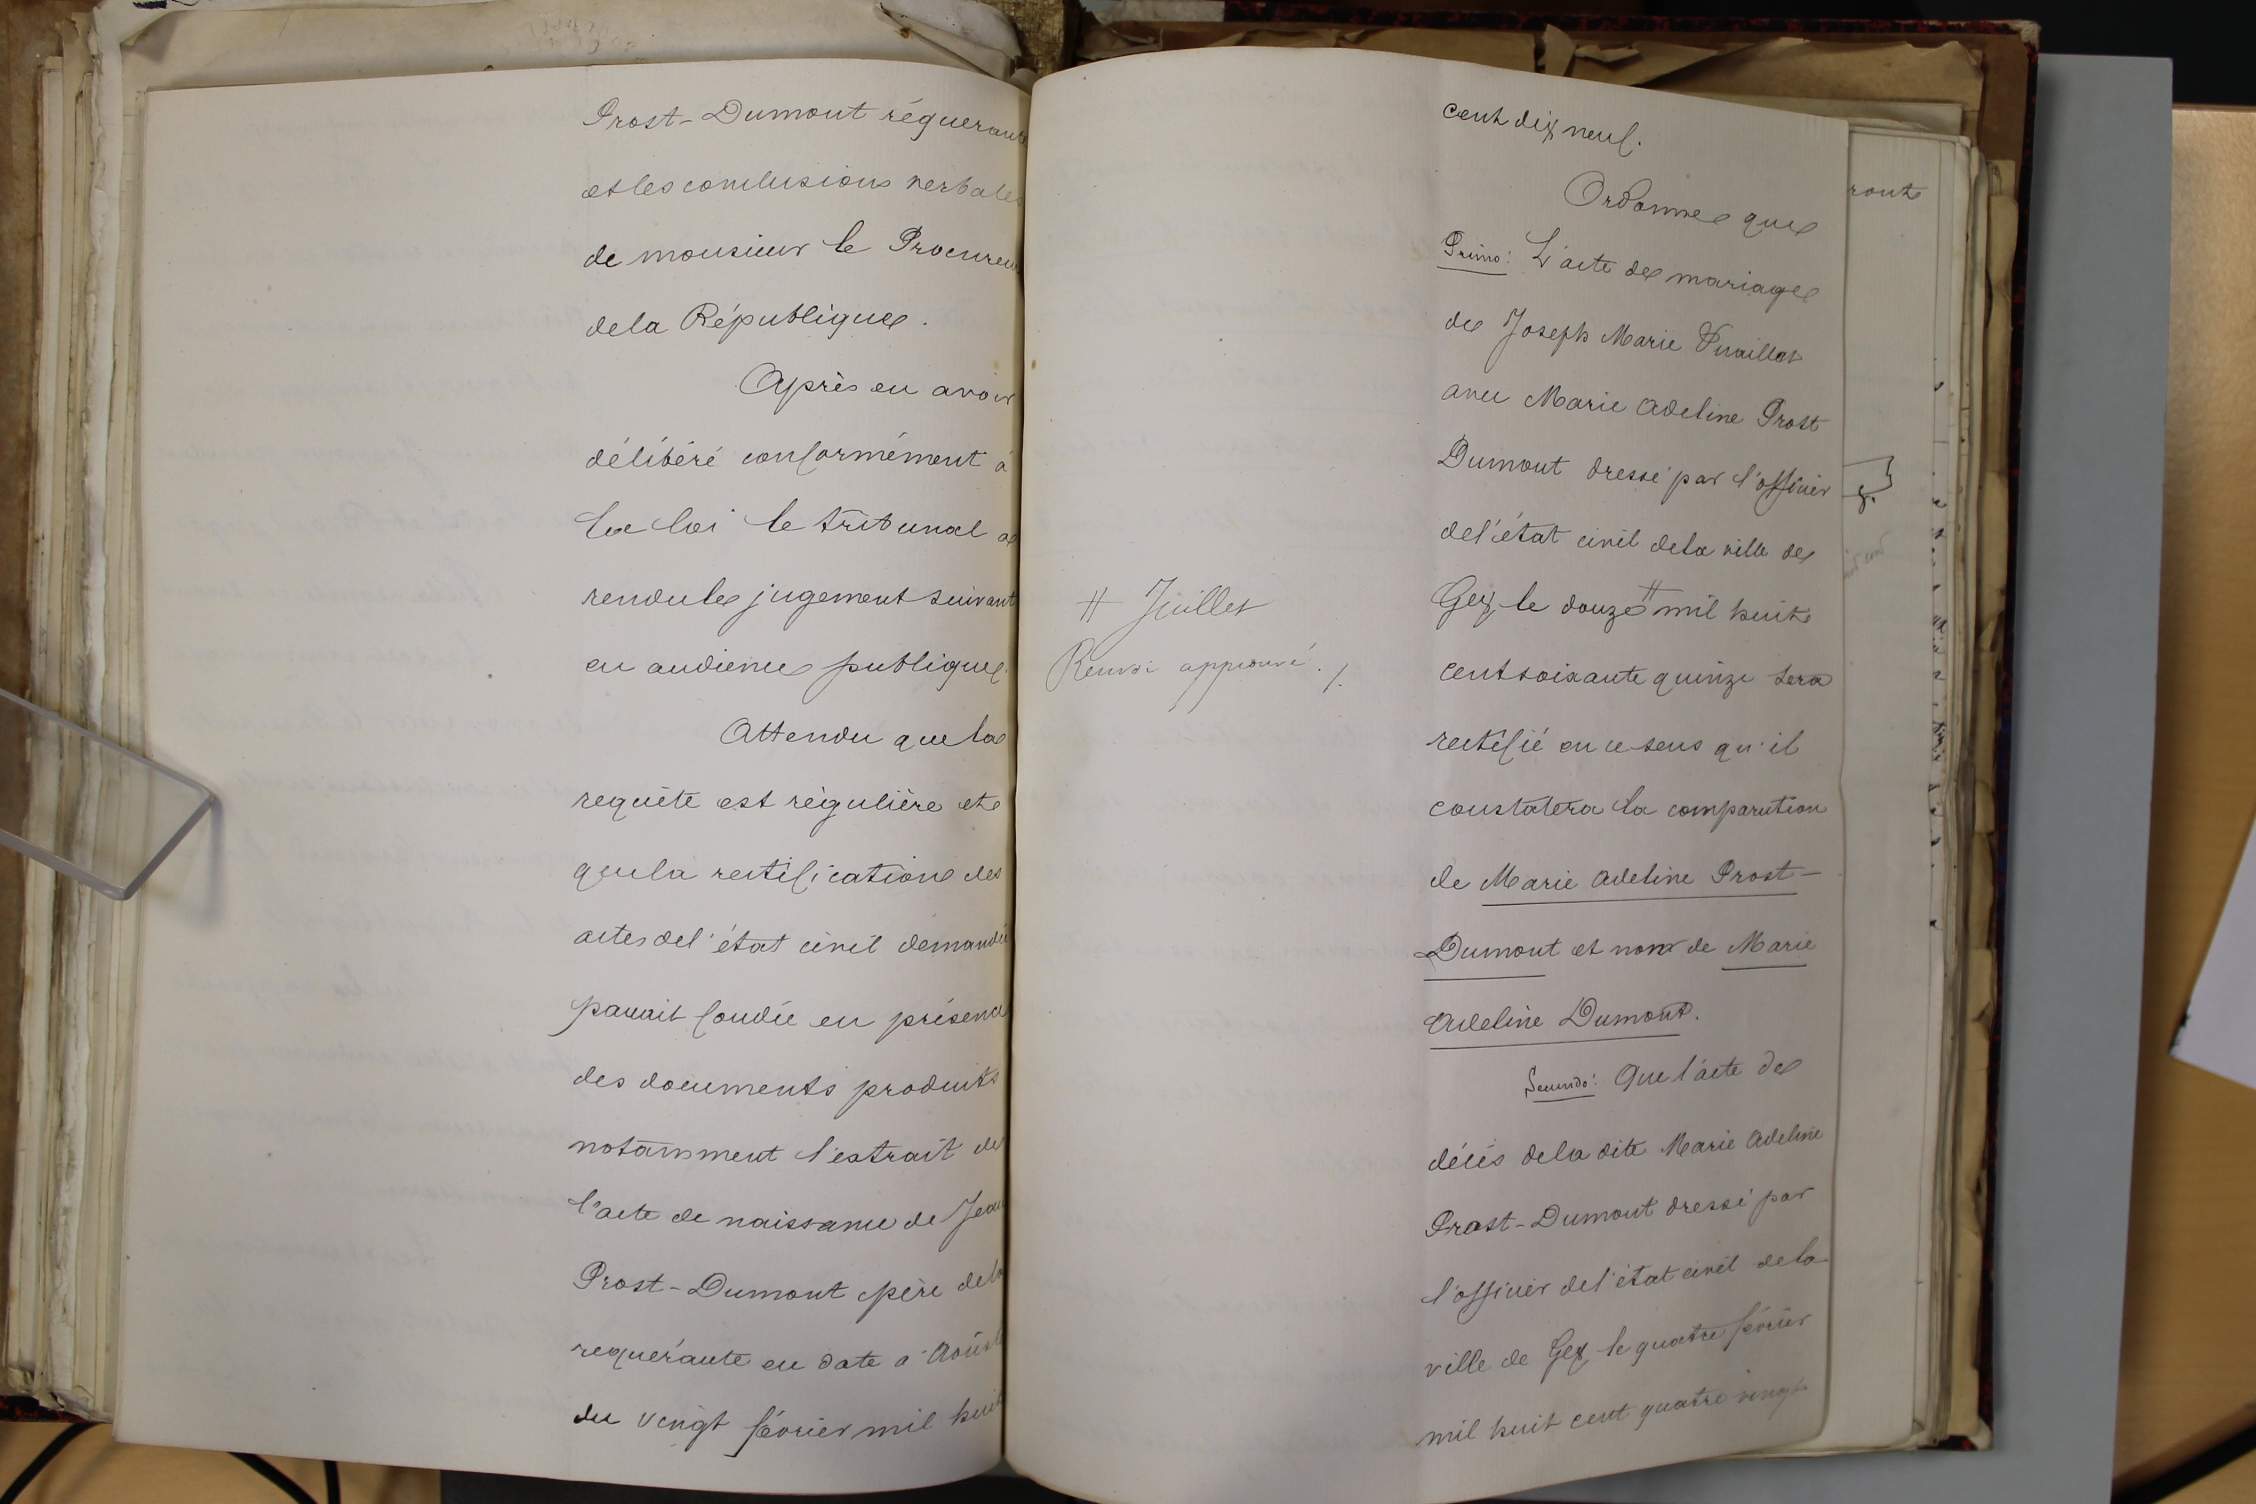 Prost-Dumont réquerante
et les conclusions verbales
de monsieur le Procureur
de la République.
Après en avoir
délibéré conformément à
la loi le tribunal a
rendu le jugement suivant
en audience publique.
Attendu que la
requête est régulière et
que la rectification des
actes de l'état civil demandée
parait fondée en présence
des documents produits
notamment l'extrait de
l'acte de naissance de Jean
Prost-Dumont père de la
requérante en date à Août
du vingt février mil huit
# Juillet
Renvoi approuvé ./.
cent dix neuf.
Ordonne que
Primo: L'acte de mariage
de Joseph Marie Vuaillat
avec Marie Adeline Prost
Dumont dressé par l'officier
de l'état civil de la ville de
Gex le douze # mil huit
cent soixante quinze sera
rectifié en ce sens qu'il
constatera la comparution
de Marie Adeline Prost-
Dumont et non de Marie
Adeline Dumont.
Secundo: Que l'acte de
décès de la dite Marie Adeline
Prost-Dumont dressé par
l'officier de l'état civil de la
ville de Gex le quatre février
mil huit cent quatre vingt